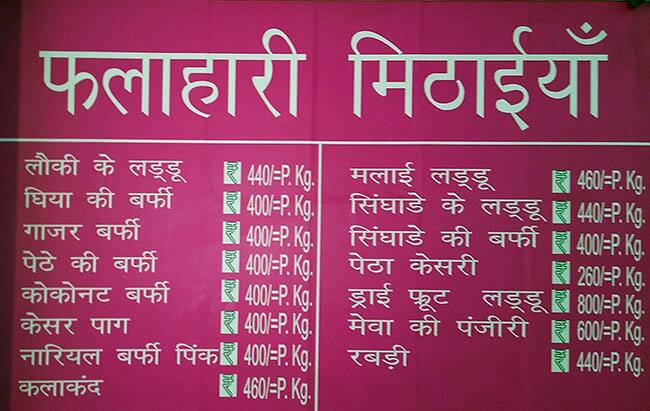 फलाहारी मिठाईयाँ
लौकी के लड्डू ₹ 440/=P. Kg.
घिया की बर्फी ₹ 400/=P. Kg.
गाजर बर्फी ₹ 400/=P. Kg.
पेठे की बर्फी ₹ 400/=P. Kg.
कोकोनट बर्फी ₹ 400/=P. Kg.
केसर पाग ₹ 400/=P. Kg.
नारियल बर्फी पिंक ₹ 400/=P. Kg.
कलाकंद ₹ 460/=P. Kg.
मलाई लड्डू ₹ 460/=P. Kg.
सिंघाडे के लड्डू ₹ 440/=P. Kg.
सिंघाडे की बर्फी ₹ 400/=P. Kg.
पेठा केसरी ₹ 260/=P. Kg.
ड्राई फ्रूट लड्डू ₹ 800/=P. Kg.
मेवा की पंजीरी ₹ 600/=P. Kg.
रबड़ी ₹ 440/=P. Kg.